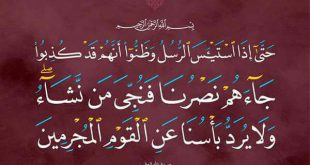 بسم الله الرحمن الرحيم
حَتَّىٰ إِذَا اسْتَيْئَسَ الرُّسُلُ وَظَنُّوا أَنَّهُمْ قَدْ كُذِبُوا
جَاءَهُمْ نَصْرُنَا فَنُجِّيَ مَن نَّشَاءُ ۖ
وَلَا يُرَدُّ بَأْسُنَا عَنِ الْقَوْمِ الْمُجْرِمِينَ